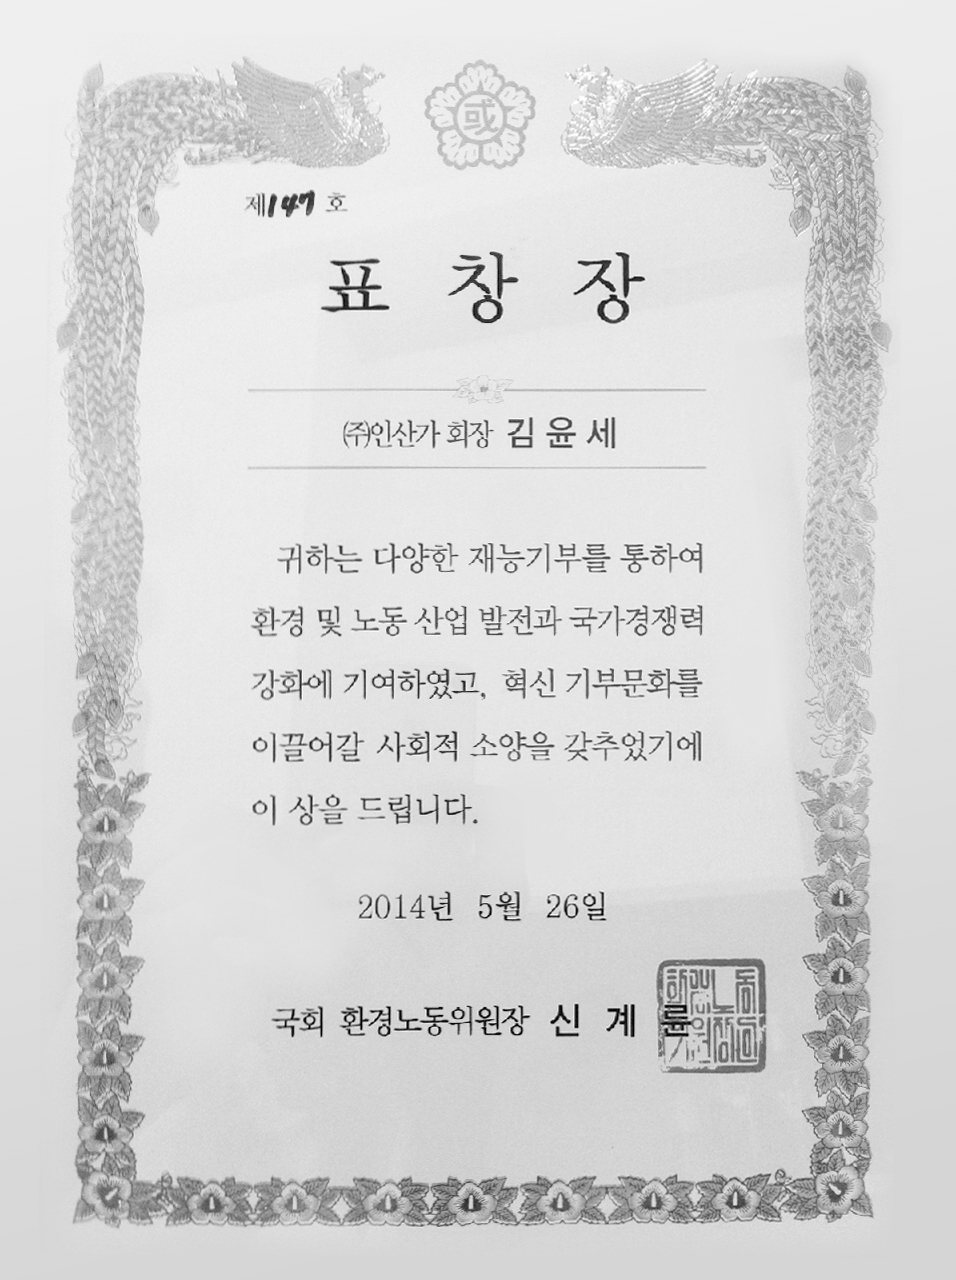 或
제147 호
표 창 장
㈜인산가 회장 김 윤 세
귀하는 다양한 재능기부를 통하여
환경 및 노동 산업 발전과 국가경쟁력
강화에 기여하였고, 혁신 기부문화를
이끌어갈 사회적 소양을 갖추었기에
이 상을 드립니다.
2014년 5월 26일
국회 환경노동위원장 신 계 륜